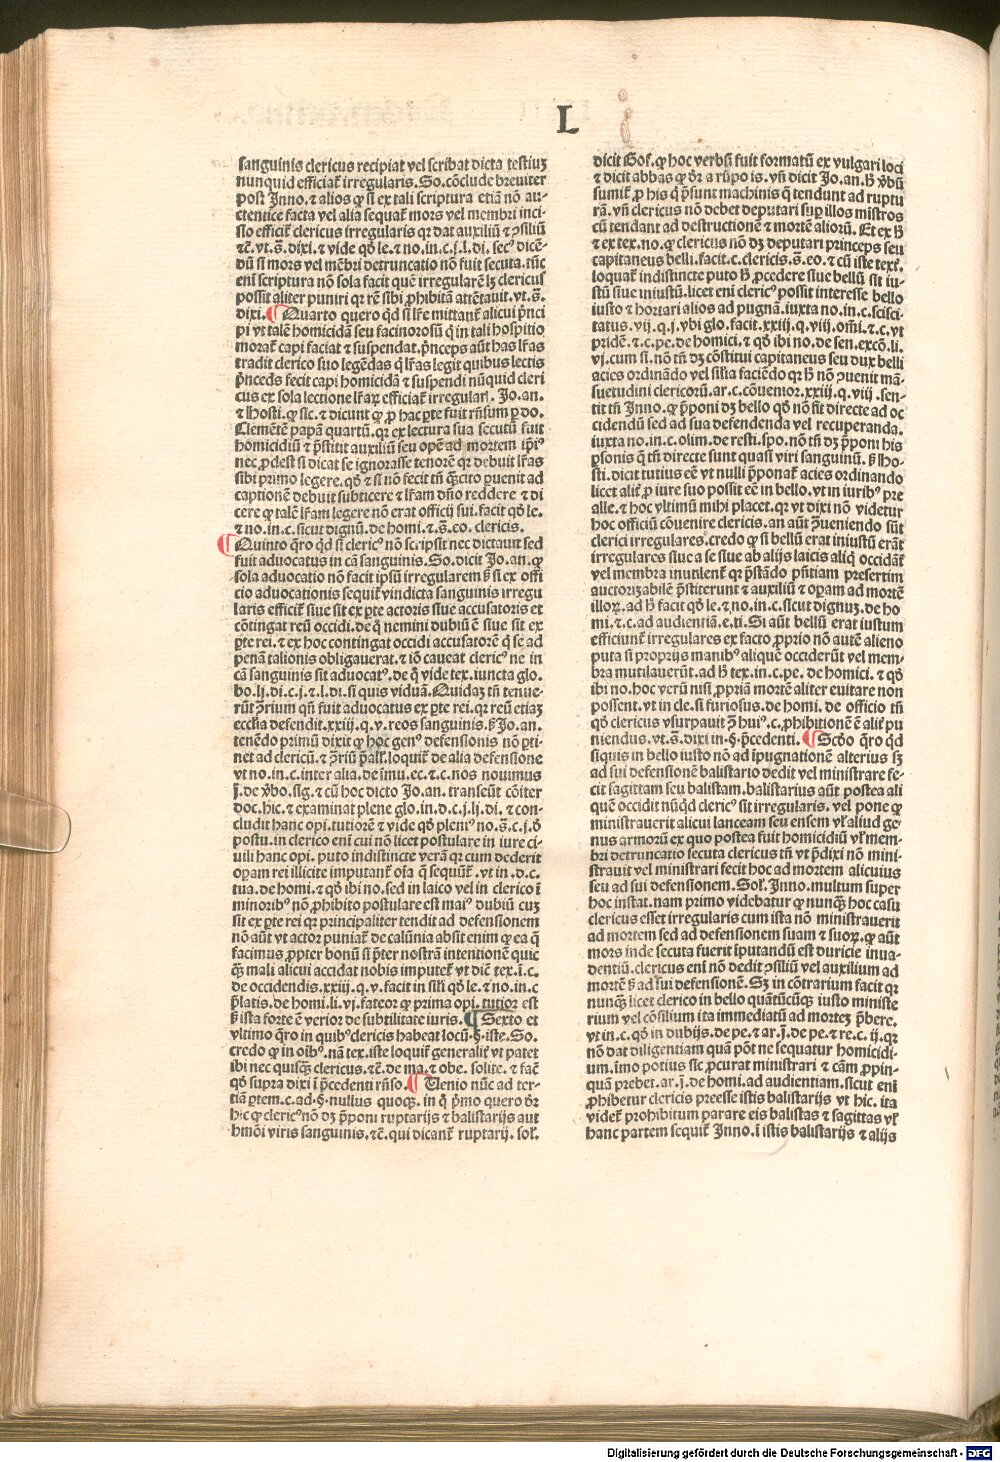 L
sanguinis clericus recipiat vel scribat dicta testiuꝫ
nunquid efficiat᷑ irregularis. So. cōclude breuiter
post Inno. ⁊ alios ꝙ si ex tali scriptura etiā nō au-
ctentice facta vel alia sequat᷑ mors vel membri inci-
sio efficit᷑ clericus irregularis qꝛ dat auxiliū ⁊ ꝯsiliū
⁊c̄. vt. s̄. dixi. ⁊ vide qđ le. ⁊ no. in. c. j. l. di. secꝰ dicē-
dū si mors vel mēbri detruncatio nō fuit secuta. tūc
eni scriptura nō sola facit quē irregularē lꝫ clericus
possit aliter puniri qꝛ rē sibi ꝓhibitā attētauit. vt. s̄.
dixi. ¶ Quarto quero qđ si lr̄e mittant᷑ alicui p̄nci
pi vt talē homicidā seu facinorosū q̄ in tali hospitio
morat᷑ capi faciat ⁊ suspendat. p̄nceps aūt has lr̄as
tradit clerico suo legēdas q̄ lr̄as legit quibus lectis
p̄nceps fecit capi homicidā ⁊ suspendi nūquid cleri
cus ex sola lectione lr̄aꝝ efficiat᷑ irregulari. Jo. an.
⁊ Hosti. ꝙ sic. ⁊ dicunt ꝙ ꝓ hac ꝑte fuit rn̄sum ꝑ do.
Clemētē papā quartū. qꝛ ex lectura sua secutū fuit
homicidiū ⁊ p̄stitit auxiliū seu opē ad mortem ip̄iꝰ
nec ꝓdest si dicat se ignorasse tenorē qꝛ debuit lr̄as
sibi primo legere. qđ ⁊ si nō fecit tn̄ q̄ꝫcito ꝑuenit ad
captionē debuit subticere ⁊ lr̄am dn̄o reddere ⁊ di
cere ꝙ talē lr̄am legere nō erat officij sui. facit qđ le.
⁊ no. in. c. sicut dignū. de homi. ⁊. s̄. eo. clericis.
¶ Quinto q̄ro qđ si clericꝰ nō scripsit nec dictauit sed
fuit aduocatus in cā sanguinis. So. dicit Jo. an. ꝙ
sola aduocatio nō facit ipsū irregularem s̄ si ex offi
cio aduocationis sequit᷑ vindicta sanguinis irregu
laris efficit᷑ siue sit ex ꝑte actoris siue accusatoris et
cōtingat reū occidi. de q̄ nemini dubiū ē siue sit ex
ꝑte rei. ⁊ ex hoc contingat occidi accusatorē q̄ se ad
penā talionis obligauerat. ⁊ iō caueat clericꝰ ne in
cā sanguinis sit aduocatꝰ. de q̄ vide tex. iuncta glo.
bo. lj. di. c. j. ⁊ l. di. si quis viduā. Quidaꝫ tn̄ tenue-
rūt ꝯ̄rium qn̄ fuit aduocatus ex ꝑte rei. qꝛ reū etiaꝫ
eccl̄ia defendit. xxiij. q. v. reos sanguinis. s̄ Jo. an.
tenēdo primū dixit ꝙ hoc genꝰ defensionis nō ꝑti-
net ad clericū. ⁊ ꝯ̄riū p̄all̄. loquit᷑ de alia defensione
vt no. in. c. inter alia. de īmu. ec. ⁊. c. nos nouimus
j̄. de v̄bo. sig. ⁊ cū hoc dicto Jo. an. transeūt cōiter
doc. hic. ⁊ examinat plene glo. in. d. c. j. lj. di. ⁊ con-
cludit hanc opi. tutiorē ⁊ vide qđ pleniꝰ no. s̄. c. j. đ
postu. in clerico eni cui nō licet postulare in iure ci-
uili hanc opi. puto indistincte verā qꝛ cum dederit
oꝑam rei illicite imputant᷑ oīa q̄ sequūt᷑. vt in. d. c.
tua. de homi. ⁊ qđ ibi no. sed in laico vel in clerico ī
minoribꝰ nō ꝓhibito postulare est maiꝰ dubiū cuꝫ
sit ex ꝑte rei qꝛ principaliter tendit ad defensionem
nō aūt vt actor puniat᷑ de calūnia absit enim ꝙ ea q̄
facimus ꝓpter bonū si p̄ter nostrā intentionē quic
q̄ꝫ mali alicui accidat nobis imputet᷑ vt diē tex. ī. c.
de occidendis. xxiij. q. v. facit in sil̄i qđ le. ⁊ no. in. c
p̄latis. de homi. li. vj. fateor ꝙ prima opi. tutior est
s̄ ista forte ē verior de subtilitate iuris. ¶ Sexto et
vltimo q̄ro in quibꝰ clericis habeat locū. §. iste. So.
credo ꝙ in oībꝰ. nā tex. iste loquit᷑ generalit᷑ vt patet
ibi nec quisq̄ꝫ clericus. ⁊c̄. de ma. ⁊ obe. solite. ⁊ facē
qđ supra dixi ī p̄cedenti rn̄so. ¶ Uenio nūc ad ter-
tiā ꝑtem. c. ad. §. nullus quoqꝫ. in q̄ p̄mo quero ōr
hic ꝙ clericꝰ nō dꝫ p̄poni ruptarijs ⁊ balistarijs aut
hmōi viris sanguinis. ⁊c̄. qui dicant᷑ ruptarij. sol᷑.
dicit Gof. ꝙ hoc verbū fuit formatū ex vulgari loci
⁊ dicit abbas ꝙ ōr a rūpo is. vn̄ dicit Jo. an. hͦ v̄bū
sumit᷑ ꝓ his q̄ p̄sunt machinis q̄ tendunt ad ruptu
rā. vn̄ clericus nō debet deputari suꝑ illos mistros
cū tendant ad destructionē ⁊ mortē alioꝝ. Et ex hͦ
⁊ ex tex. no. ꝙ clericus nō dꝫ deputari princeps seu
capitaneus belli. facit. c. clericis. s̄. eo. ⁊ cū iste tex᷑.
loquat᷑ indistincte puto hͦ ꝓcedere siue bellū sit iu-
stū siue iniustū. licet eni clericꝰ possit interesse bello
iusto ⁊ hortari alios ad pugnā. iuxta no. in. c. scisci-
tatus. vij. q. j. vbi glo. facit. xxiij. q. viij. om̄i. ⁊. c. vt
pridē. ⁊. c. pe. de homici. ⁊ qđ ibi no. de sen. excō. li.
vj. cum si. nō tn̄ dꝫ cōstitui capitaneus seu dux belli
acies ordinādo vel silia faciēdo qꝛ hͦ nō ꝯuenit mā-
suetudini clericorū. ar. c. cōuenior. xxiij. q. viij. sen-
tit tn̄ Inno. ꝙ p̄poni dꝫ bello qđ nō fit directe ad oc
cidendū sed ad sua defendenda vel recuperanda.
iuxta no. in. c. olim. de resti. spo. nō tn̄ dꝫ p̄poni his
ꝑsonis q̄ tn̄ directe sunt quasi viri sanguinū. s̄ Ho-
sti. dicit tutius eē vt nulli p̄ponat᷑ acies ordinando
licet alit᷑ ꝓ iure suo possit eē in bello. vt in iuribꝰ pre
alle. ⁊ hoc vltimū mihi placet. qꝛ vt dixi nō videtur
hoc officiū cōuenire clericis. an aūt p̄ueniendo sūt
clerici irregulares. credo ꝙ si bellū erat iniustū erāt
irregulares siue a se siue ab alijs laicis aliq̄ occidāt᷑
vel membra mutilent᷑ qꝛ p̄stādo pn̄tiam presertim
auctorizabilē p̄stiterunt ⁊ auxiliū ⁊ oꝑam ad mortē
illoꝝ. ad hͦ facit qđ le. ⁊ no. in. c. sicut dignuꝫ. de ho
mi. ⁊. c. ad audientiā. e. ti. Si aūt bellū erat iustum
efficiunt᷑ irregulares ex facto ꝓprio nō autē alieno
puta si proprijs manibꝰ aliquē occiderūt vel mem-
bra mutilauerūt. ad hͦ tex. in. c. pe. de homici. ⁊ qđ
ibi no. hoc verū nisi ꝓpriā mortē aliter euitare non
possent. vt in cle. si furiosus. de homi. de officio tn̄
qđ clericus vsurpauit ꝯ̄ huiꝰ. c. ꝓhibitionē ē alit᷑ pu
niendus. vt. s̄. dixi in. §. p̄cedenti. ¶ Scđo q̄ro qđ
siquis in bello iusto nō ad īpugnationē alterius sꝫ
ad sui defensionē balistario dedit vel ministrare fe-
cit sagittam seu balistam. balistarius aūt postea ali
quē occidit nūqđ clericꝰ sit irregularis. vel pone ꝙ
ministrauerit alicui lanceam seu ensem vl᷑ aliud ge-
nus armorū ex quo postea fuit homicidiū vl᷑ mem-
bri detruncatio secuta clericus tn̄ vt p̄dixi nō mini-
strauit vel ministrari fecit hoc ad mortem alicuius
seu ad sui defensionem. Sol᷑. Inno. multum super
hoc instat. nam primo videbatur ꝙ nunqꝫ hoc casu
clericus esset irregularis cum ista nō ministrauerit
ad mortem sed ad defensionem suam ⁊ suoꝝ. ꝙ aūt
mors inde secuta fuerit īputandū est duricie inua-
dentiū. clericus eni nō dedit ꝯsiliū vel auxilium ad
mortē s̄ ad sui defensionē. Sꝫ in cōtrarium facit qꝛ
nunqꝫ licet clerico in bello quātūcūqꝫ iusto ministe
rium vel cōsilium ita immediatū ad morteꝫ p̄bere.
vt in. c. qđ in dubijs. de pe. ⁊ ar. j̄. de pe. ⁊ re. c. ij. qꝛ
nō dat diligentiam quā pōt ne sequatur homicidi-
um. īmo potius sic ꝓcurat ministrari ⁊ cām ꝓpin-
quā prebet. ar. j̄. de homi. ad audientiam. sicut eni
ꝓhibetur clericis preesse istis balistarijs vt hic. ita
videt᷑ prohibitum parare eis balistas ⁊ sagittas vl᷑
hanc partem sequit᷑ Inno. ī istis balistarijs ⁊ alijs
Digitalisierung gefördert durch die Deutsche Forschungsgemeinschaft - DFG